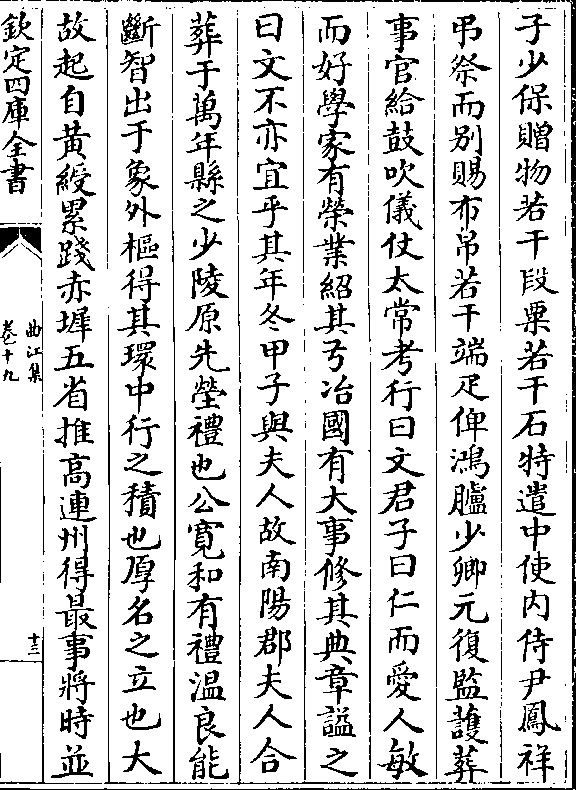 子少保贈物若干段粟若干石特遣中使内侍尹鳳祥
弔祭而别賜布帛若干端疋俾鴻臚少卿元復監護葬
事官給鼓吹儀仗太常考行曰文君子曰仁而愛人敏
而好學家有榮業紹其弓冶國有大事修其典章諡之
曰文不亦宜乎其年冬甲子與夫人故南陽郡夫人合
葬于萬年縣之少陵原先塋禮也公寛和有禮温良能
斷智出于象外樞得其環中行之積也厚名之立也大
故起自黄綬累踐赤墀五省推高連州得最事將時並
欽定四庫全書
曲江集
卷十九
十三